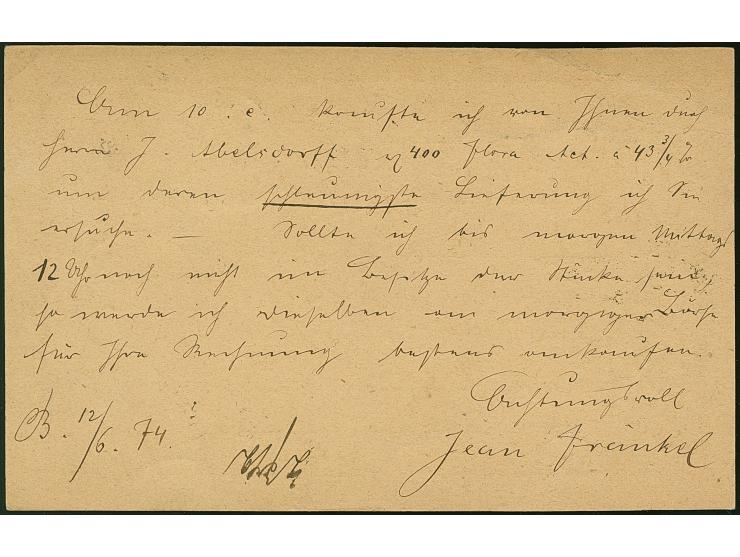 Am 10. c. kaufte ich von Ihnen durch
Herrn J. Abelsdorff 400 Flora Act. à 43 3/4 %
um deren schleunigste Lieferung ich Sie
ersuche. — Sollte ich bis morgen Mittags
12 Uhr noch nicht im Besitze der Stücke sein,
so werde ich dieselben an morgiger Börse
für Ihre Rechnung bestens ankaufen.
Achtungsvoll
B. 12/6. 74.
Jean Fränkel